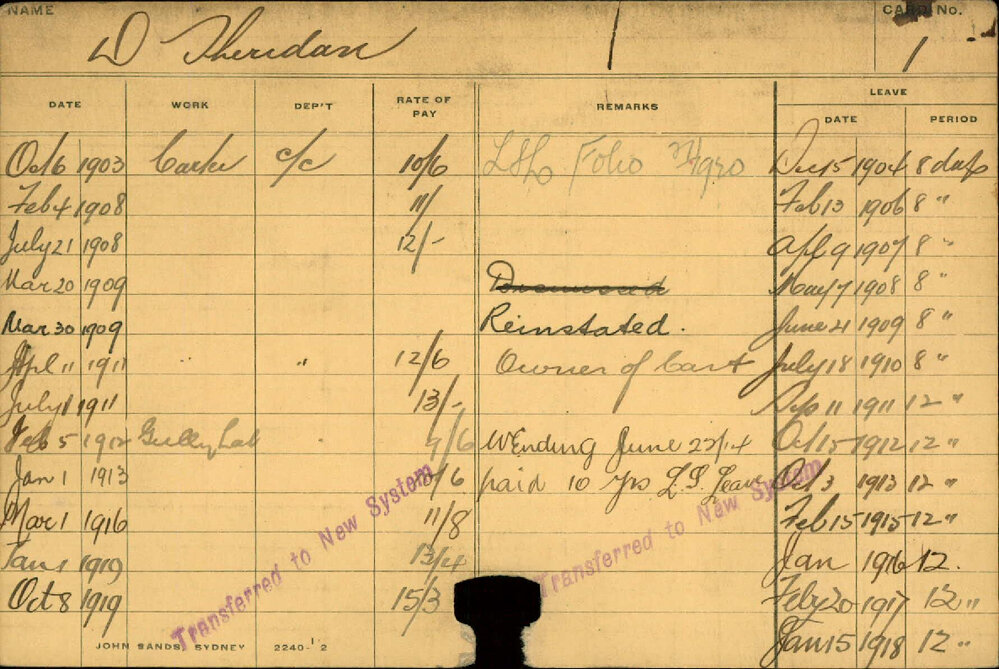 NAME CARD No.
D Sheridan 1 1
DATE WORK DEP'T RATE OF PAY REMARKS LEAVE
DATE PERIOD
Oct 6 1903 Carter c/c 10/6 Folio Dec 15 1904 8 days
Feb 4 1908 11/ Feb 13 1906 8 "
July 21 1908 12/- Apl 9 1907 8 "
Mar 20 1909 Dismissed May 7 1908 8 "
Mar 30 1909 Reinstated. June 21 1909 8 "
Apl 11 1911 " " 12/6 Owner of Cart July 18 1910 8 "
July 1 1911 13/- Sep 11 1911 12 "
Feb 5 1912 Gully Lab " 9/6 WEnding June 23/14 Oct 15 1912 12 "
Jan 1 1913 /6 paid 10 yrs L.S. Leave Oct 3 1913 12 "
Mar 1 1916 11/8 Feb 15 1915 12 "
Jan 1 1919 13/4 Jan 1916 12.
Oct 8 1919 15/3 Feby 20 1917 12 "
Jan 15 1918 12 "
Transferred to New System
Transferred to New System
JOHN SANDS, SYDNEY 2240-12